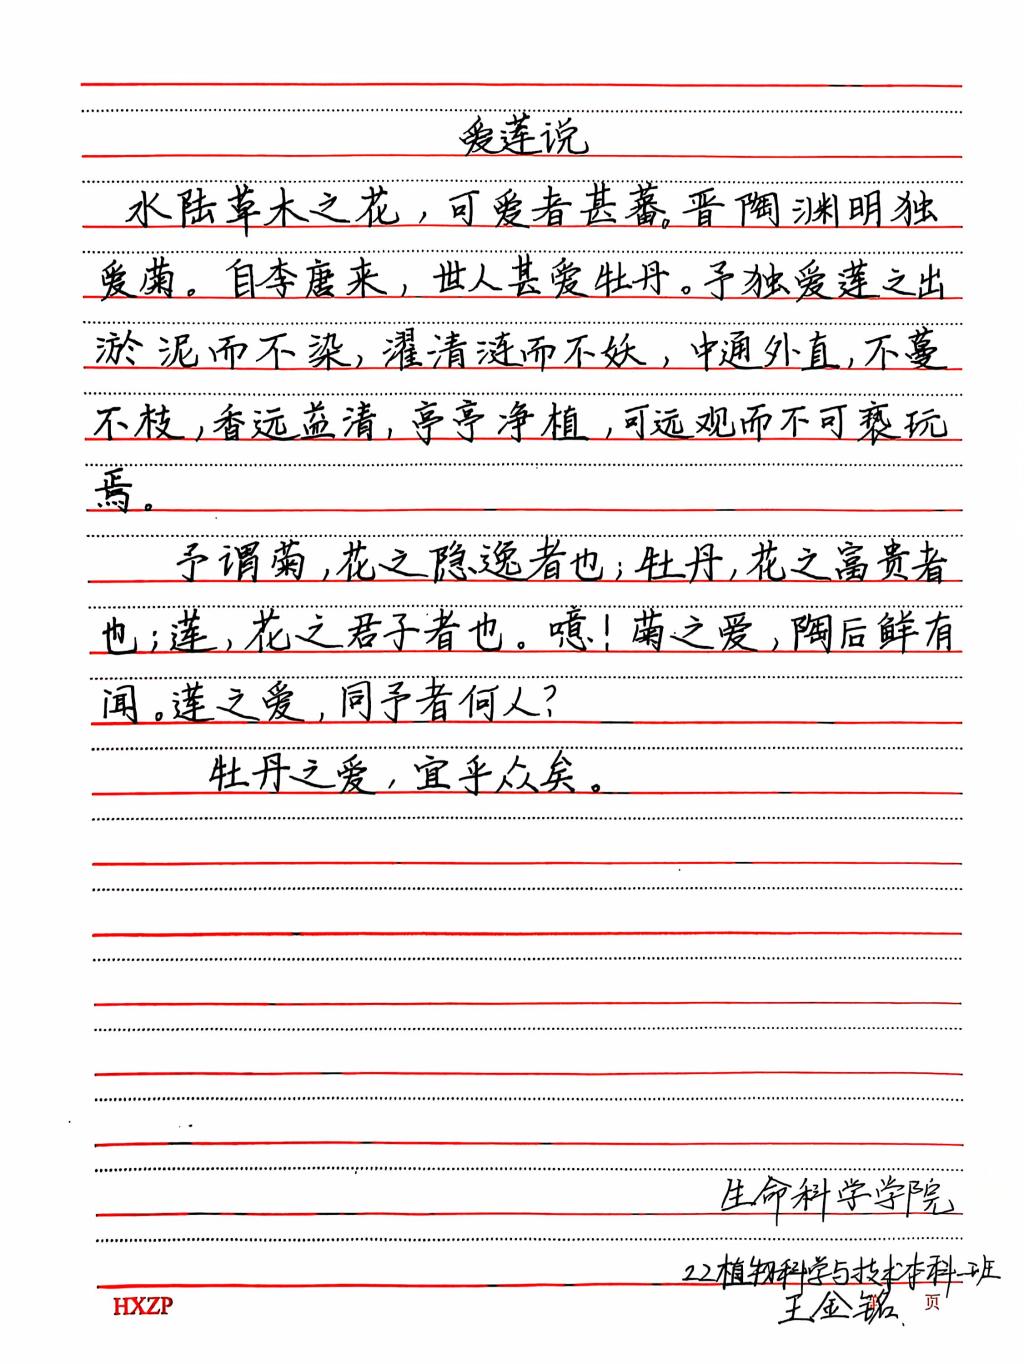 爱莲说
水陆草木之花，可爱者甚蕃。晋陶渊明独
爱菊。自李唐来，世人甚爱牡丹。予独爱莲之出
淤泥而不染，濯清涟而不妖，中通外直，不蔓
不枝，香远益清，亭亭净植，可远观而不可亵玩
焉。
予谓菊，花之隐逸者也；牡丹，花之富贵者
也；莲，花之君子者也。噫！菊之爱，陶后鲜有
闻。莲之爱，同予者何人？
牡丹之爱，宜乎众矣。
生命科学学院
22植物科学与技术本科一班
王金铭
HXZP
第 页